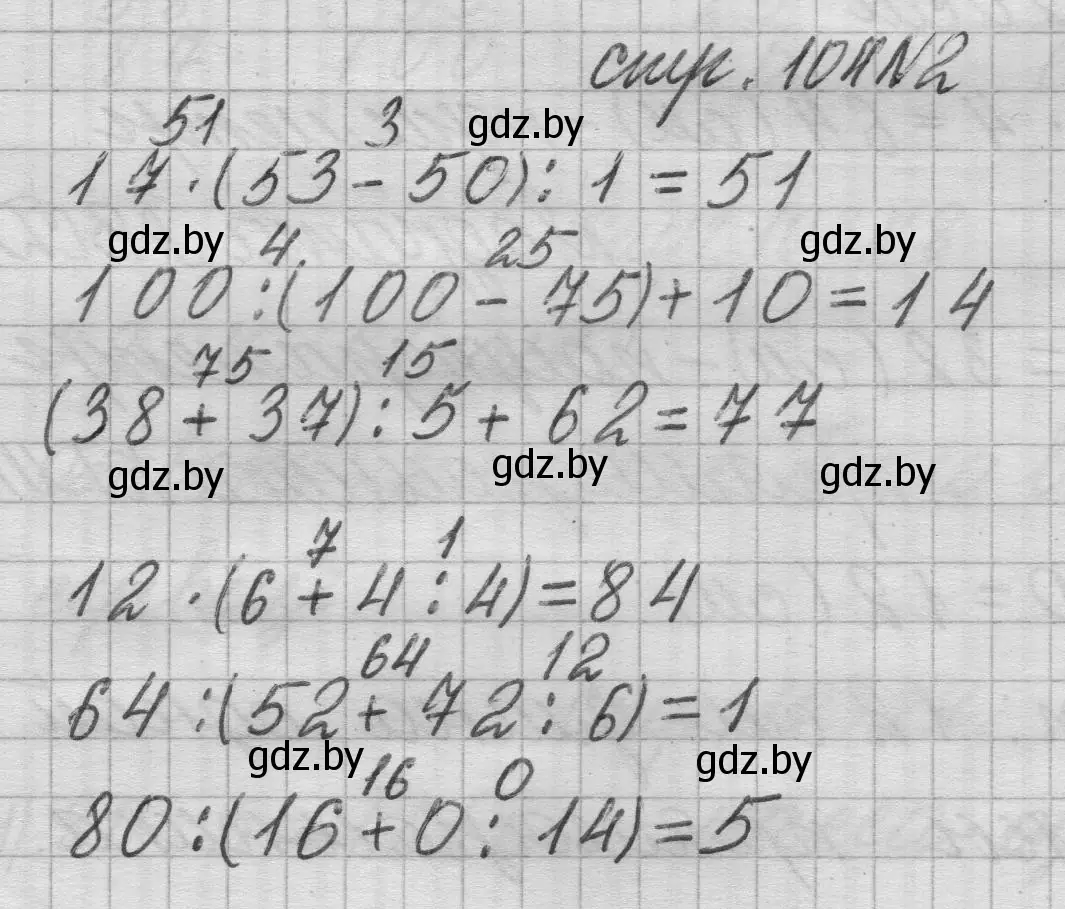 стр. 104 №2
51 3 gdz.by
17·(53-50):1=51
gdz.by 4. 25 gdz.by
100:(100-75)+10=14
75 15
(38+37):5+62=77
gdz.by gdz.by gdz.by
7 1
12·(6+4:4)=84
64 12
64:(52+72:6)=1
gdz.by 16 0 gdz.by
80:(16+0:14)=5